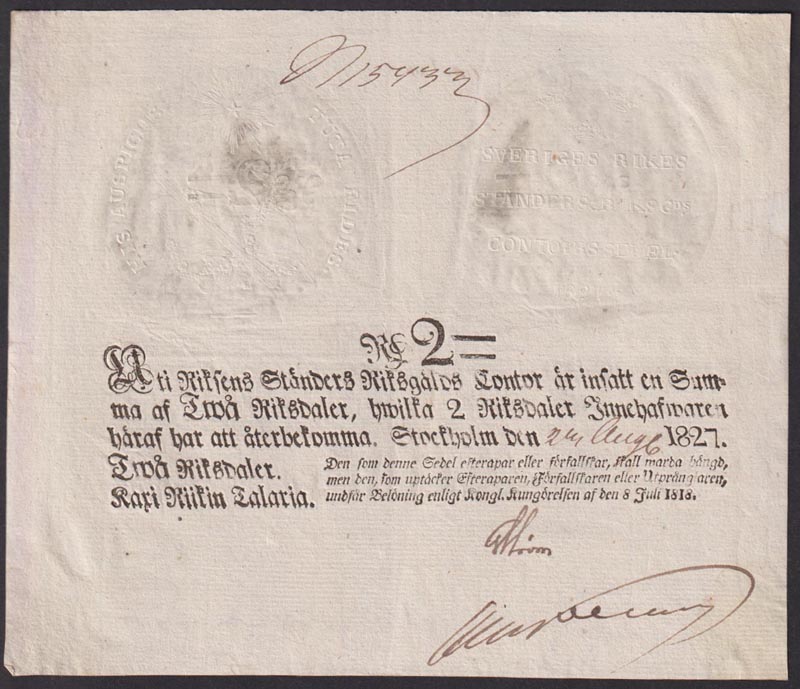 N 15433
HIS AUSPICIIS TUTA FIDES.
SVERIGES RIKES
STÄNDERS RIKSGDS
CONTOIRS SEDEL
Rg 2=
Uti Riksens Ständers Riksgälds Contor är insatt en Sum-
ma af Twå Riksdaler, hwilka 2 Riksdaler Innehafwaren
häraf har att återbekomma. Stockholm den 2 Aug 1827.
Twå Riksdaler.
Kaxi Riikin Talaria.
Den som denne Sedel efterapar eller förfallskar, skall warda hängd,
men den, som uptäcker Efteraparen, Förfallskaren eller Utprånglaren,
undfår Belöning enligt Kongl. Kungörelsen af den 8 Juli 1818.